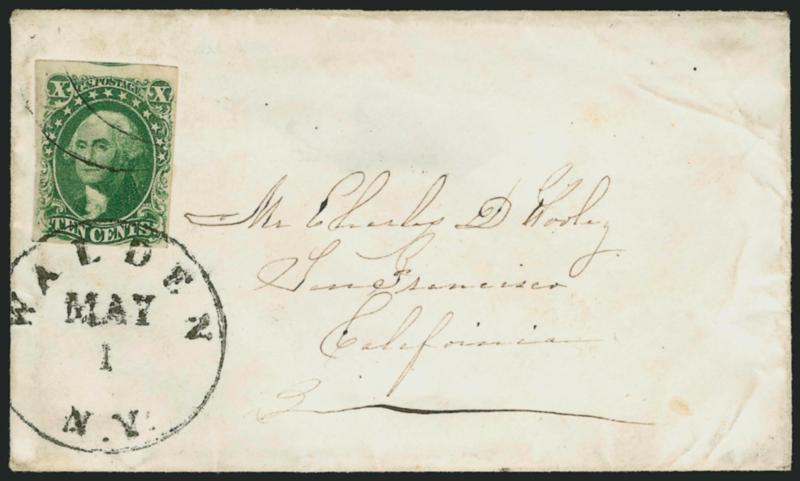 X U.S. POSTAGE X
TEN CENTS
WALDEN
MAY
1
N.Y.
Mr Charles D
San Francisco
California